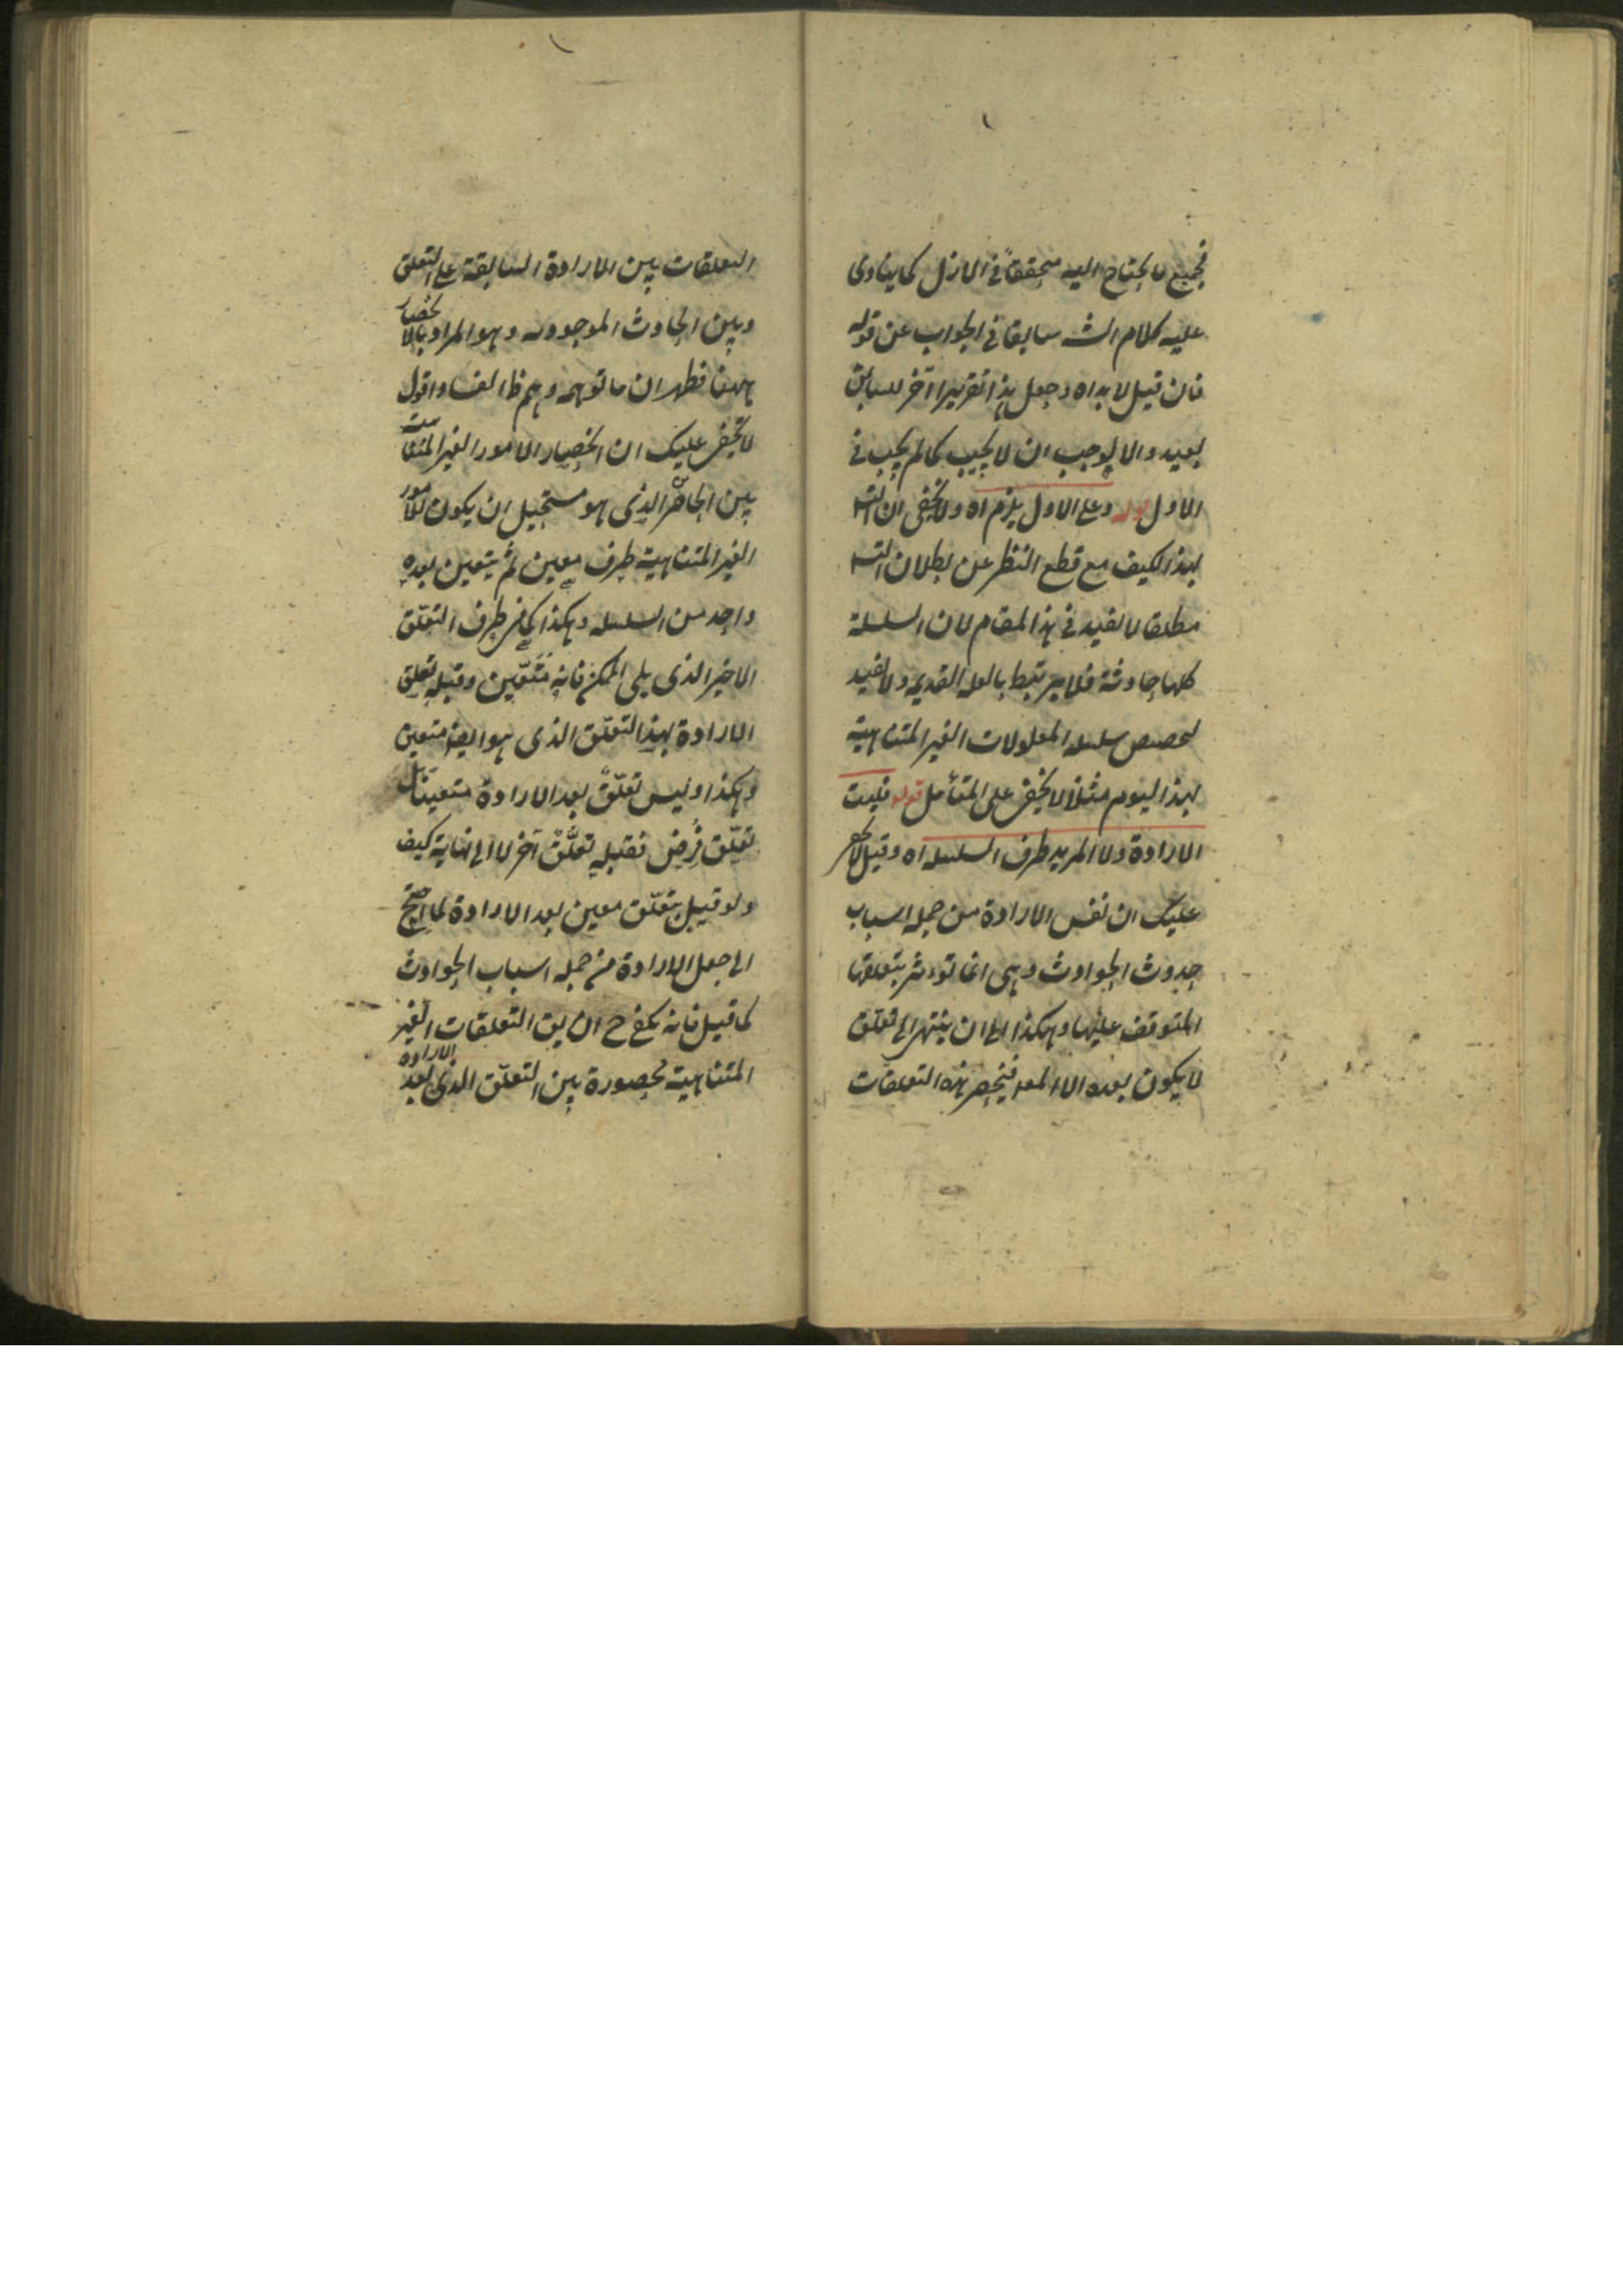 فجميع ما يحتاج اليه متحققا في الازل كما ينادى
عليه كلام الشه سابقا في الجواب عن قوله
فان قيل لا بد اه وجعل هذا تقريرا آخر للسابق
بعيد والا لوجب ان لا يجيب كما لم يجب في
الاول قوله وعلى الاول يلزم اه ولا يخفى ان التسه
بهذا الكيف مع قطع النظر عن بطلان التسه
مطلقا لا يفيد في هذا المقام لان السلسلة
كلها حادثة فلا يرتبط بالعله القديمه ولا يفيد
تخصيص سلسله المعلولات الغير المتناهية
بهذا اليوم مثلا كما لا يخفى على المتأمل قوله فليت
الارادة ولا المريد طرف السلسله اه وقيل لا يخفى
عليك ان نفس الارادة من جمله اسباب
حدوث الحوادث وهى انما تؤثر بتعلقها
المتوقف عليها وهكذا الى ان ينتهى الى تعلق
لا يكون بعده الا المعه فينحصر هذه التعلقات
التعلقات بين الارادة السابقة على التعلق
وبين الحادث الموجود وهو المراد بالانحصار
ههنا فظهر ان ما توهمه وهم ظ الفساد اقول
لا يخفى عليك ان انحصار الامور الغير المتناهية
بين الحاصرين الذى هو مستحيل ان يكون للامور
الغير المتناهية طرف معين ثم يتعين بعده
واحد من السلسله وهكذا كما في طرف التعلق
الاخير الذى يلى الممكن فانه متعين وقبله تعلق
الارادة بهذا التعلق الذى هو ايضا متعين
وهكذا وليس تعلق بعد الارادة متعينا بل كل
تعلق فرض فقبله تعلق آخر لا الى نهاية كيف
ولو قيل بتعلق معين بعد الارادة لما احتج
الى جعل الارادة من جمله اسباب الحوادث
كما قيل فانه يكفى ح ان يق التعلقات الغير
المتناهية محصورة بين التعلق الذى بعد الارادة